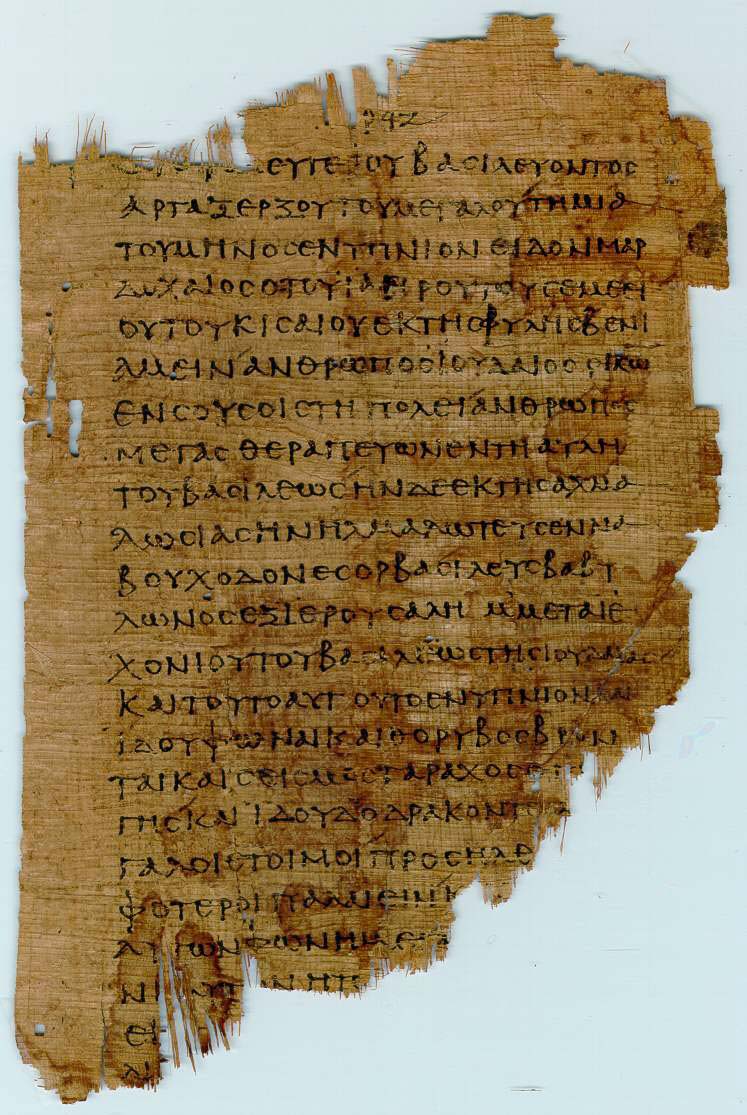 ΕΥΤΕΡΟΥΒΑϹΙΛΕΥΟΝΤΟϹ
ΑΡΤΑΞΕΡΞΟΥΤΟΥΜΕΓΑΛΟΥΤΗΜΙΑ
ΤΟΥΜΗΝΟϹΕΝΥΠΝΙΟΝΕΙΔΟΝΜΑΡ
ΔΟΧΑΙΟϹΟΤΟΥΙΑΕΙΡΟΥΤΟΥϹΕΜΕΕΙ
ΟΥΤΟΥΚΙϹΑΙΟΥΕΚΤΗϹΦΥΛΗϹΒΕΝΙ
ΑΜΕΙΝΑΝΘΡΩΠΟϹΙΟΥΔΑΙΟϹΟΙΚΩ
ΕΝϹΟΥϹΟΙϹΤΗΠΟΛΕΙΑΝΘΡΩΠΟϹ
ΜΕΓΑϹΘΕΡΑΠΕΥΩΝΕΝΤΗΑΥΛΗ
ΤΟΥΒΑϹΙΛΕΩϹΗΝΔΕΕΚΤΗϹΑΧΜΑ
ΛΩϹΙΑϹΗΝΗΧΜΑΛΩΤΕΥϹΕΝΝΑ
ΒΟΥΧΟΔΟΝΕϹΟΡΒΑϹΙΛΕΥϹΒΑΒΥ
ΛΩΝΟϹΕΞΙΕΡΟΥϹΑΛΗΜΜΕΤΑΙΕ
ΧΟΝΙΟΥΤΟΥΒΑϹΙΛΕΩϹΤΗϹΙΟΥΔΑΙΑϹ
ΚΑΙΤΟΥΤΟΑΥΤΟΥΤΟΕΝΥΠΝΙΟΝΚΑΙ
ΙΔΟΥΦΩΝΑΙΚΑΙΘΟΡΥΒΟϹΒΡΟΝ
ΤΑΙΚΑΙϹΕΙϹΜΟϹΤΑΡΑΧΟϹ
ΓΗϹΚΑΙΙΔΟΥΔΥΟΔΡΑΚΟΝΤ
ΓΑΛΟΙΕΤΟΙΜΟΙΠΡΟϹΗΛΘ
ΦΟΤΕΡΟΙΠΑΛΑΙΕΙΝ
ΑΥΤΩΝΦΩΝΗΜΕΓ